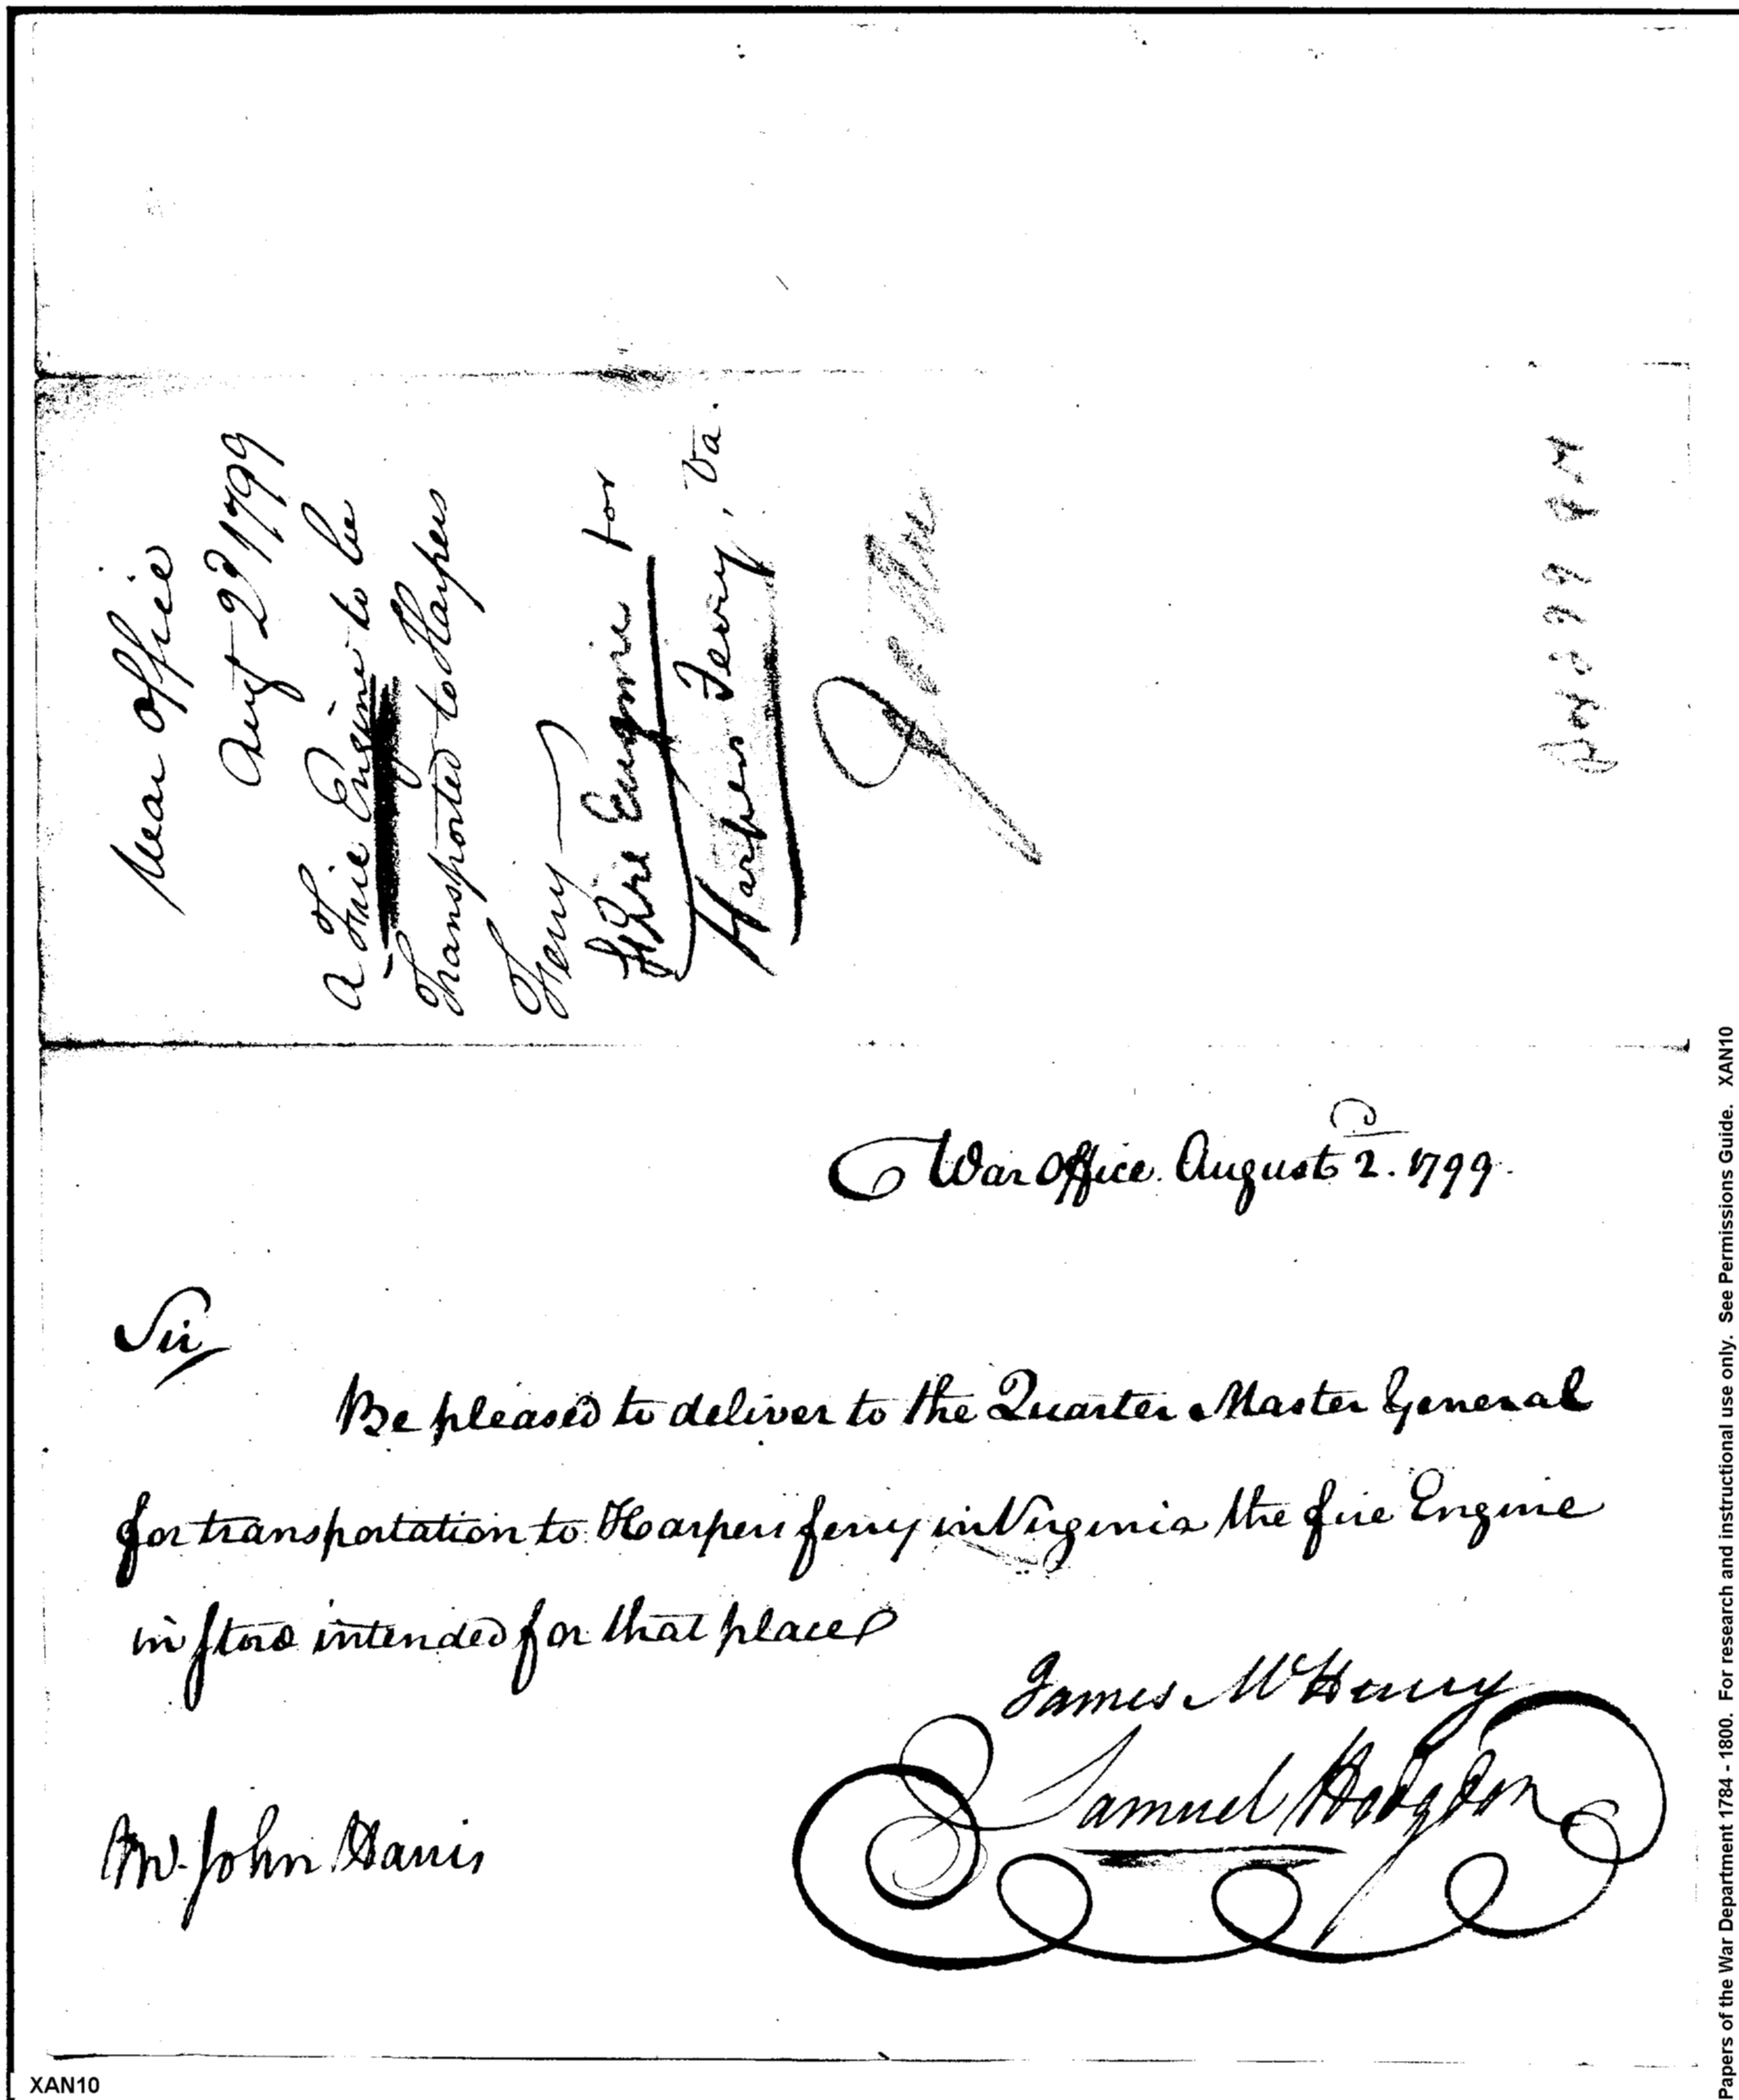 War Office
Aug 2d 1799
a Fire Engine to be
Transported to Harpers
Ferry
Fire Engine for
Harpers Ferry, Va.
War Office. August 2d. 1799.
Sir
Be pleased to deliver to the Quarter Master General
for transportation to Harpers ferry in Virginia the fire Engine
in store intended for that place
James McHenry
Samuel Hodgdon
Mr. John Harris
Papers of the War Department 1784 - 1800. For research and instructional use only. See Permissions Guide. XAN10
XAN10